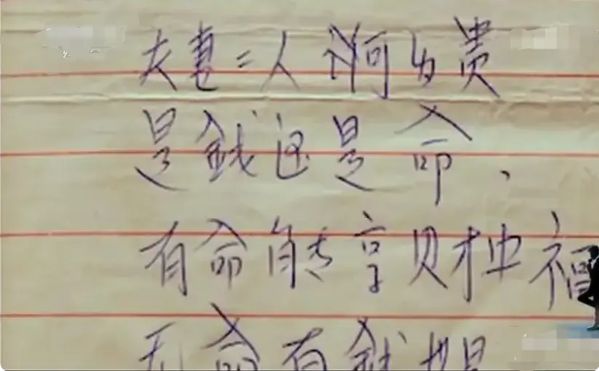 夫妻二人何为贵
是钱还是命、
有命能享财神福
无命有钱也是